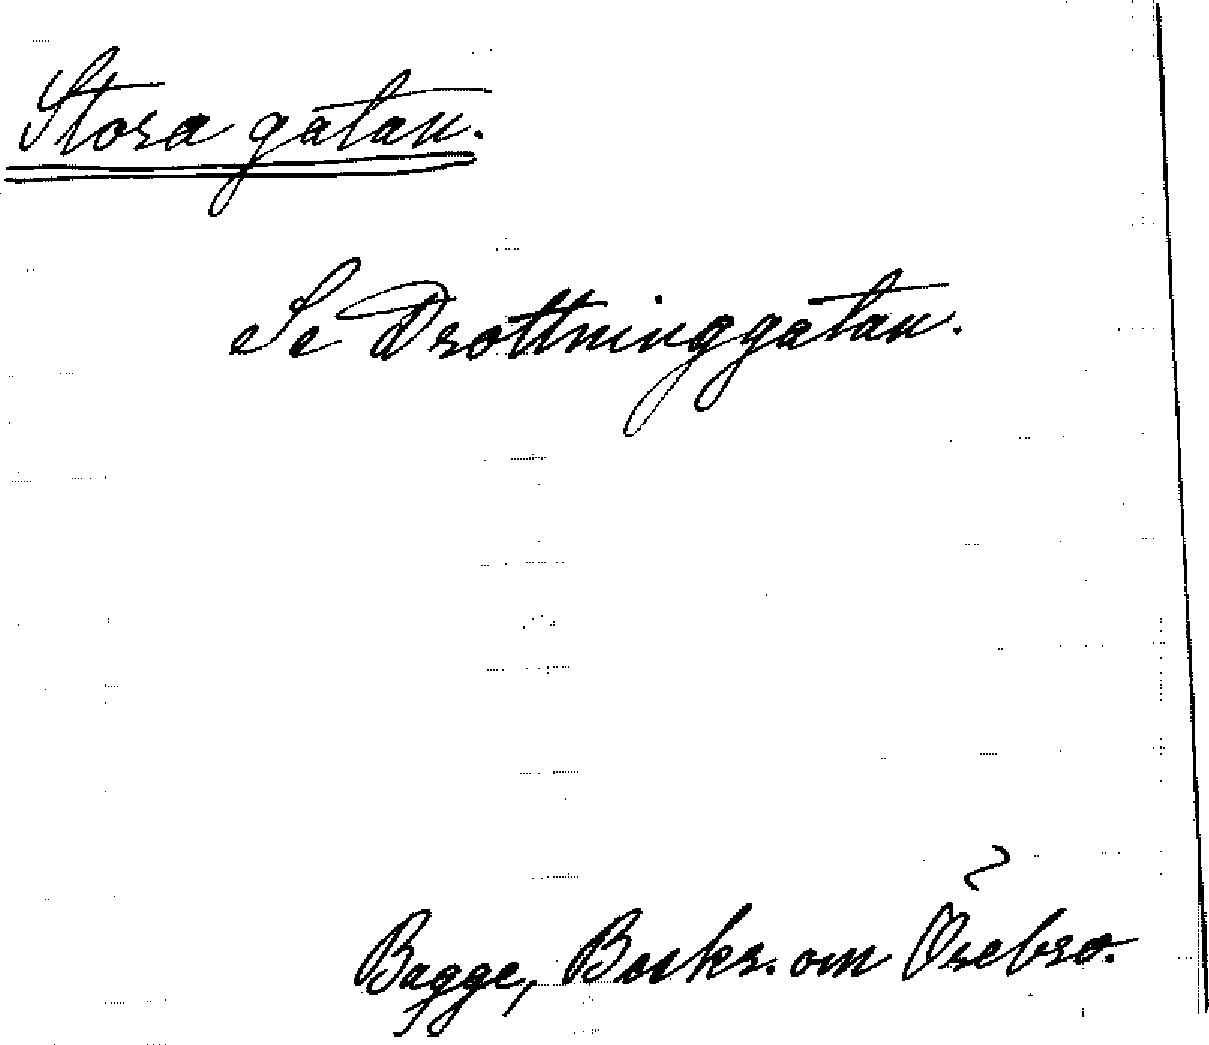 Stora gatan.
Se Drottninggatan.
Bagge, Beskr. om Örebro.